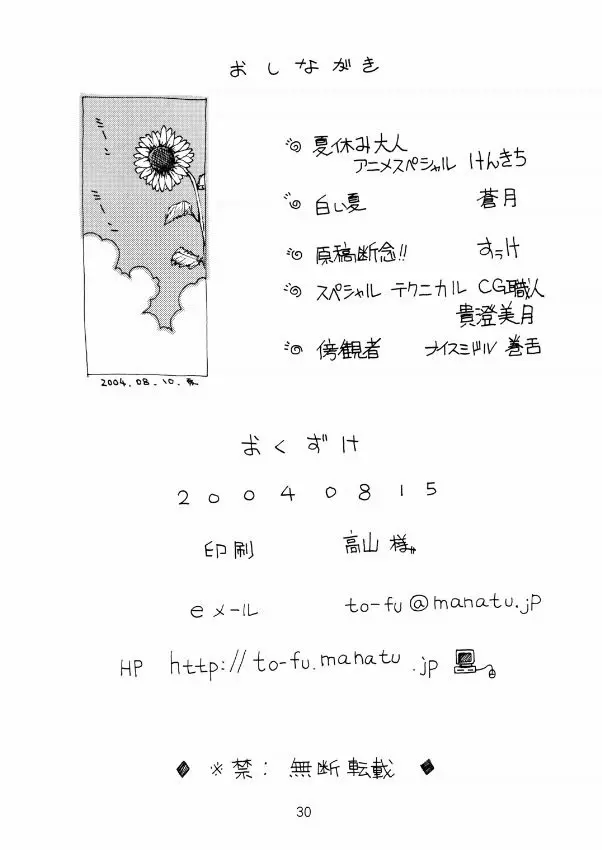 おしながき
夏休み大人
アニメスペシャル けんきち
白い夏 蒼月
原稿断念!! すぅけ
スペシャル テクニカル CG職人
貴澄美月
傍観者 ナイスミドル 巻舌
2004.08.10.
おくずけ
20040815
印刷 高山 様
eメール to-fu@manatu.jp
HP http://to-fu.manatu.jp
※禁: 無断転載
30